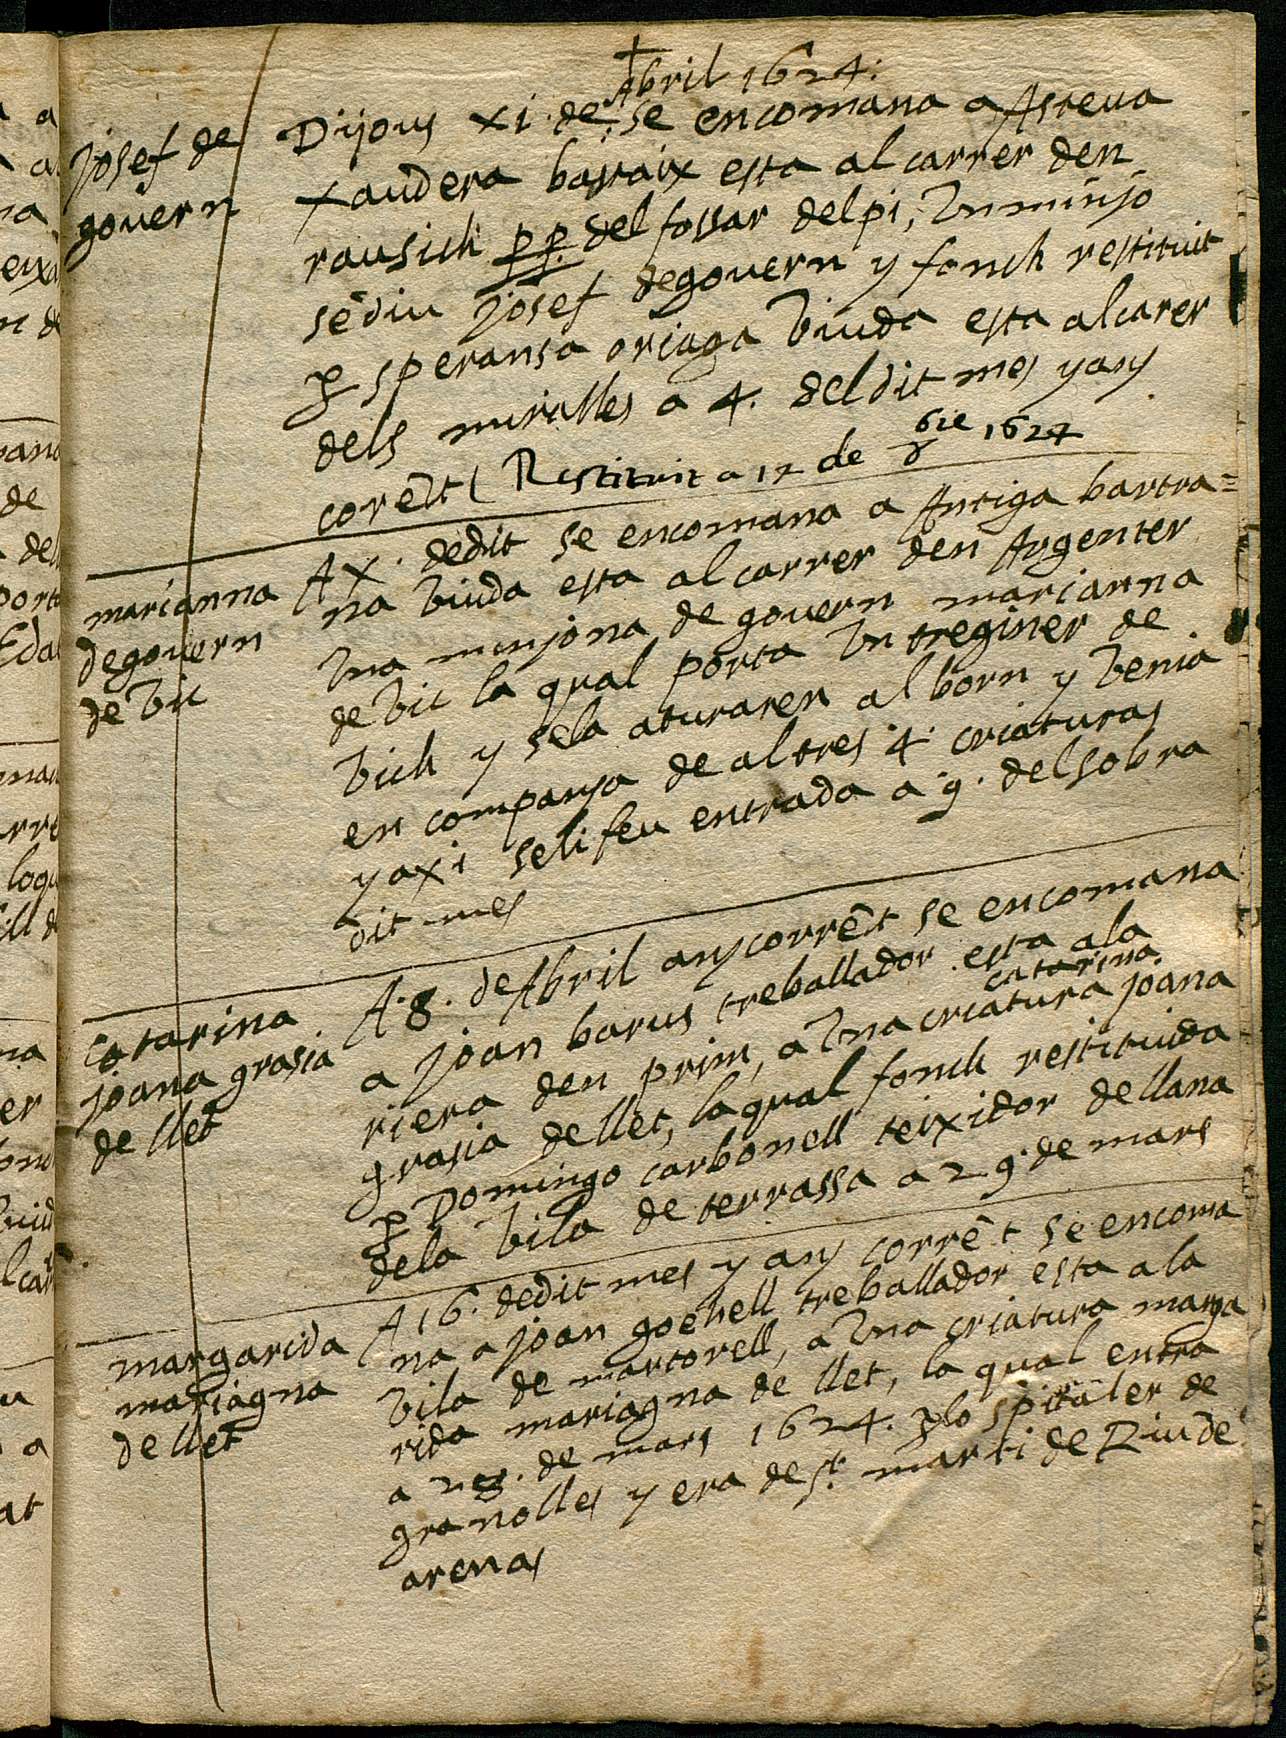 Abril 1624.
Josef de
govern
Dijous xi de se encomana a Asteva
xaudera bastaix esta al carrer den
rausich pp. del fossar del pi, Un minyo
sediu Josef de govern y fonch restituit
p speransa oriaga Viuda esta al carer
dels miralles a 4. del dit mes y any
corēt ( Restituit a 12 de 1624
marianna
de govern
de Vic
A X. de dit se encomana a Antiga bartra=
na Viuda esta al carrer den Argenter
Una minjona de govern marianna
de Vic la qual porta Un treginer de
Vich y se la aturaren al born y Venia
en companya de altres 4. criaturas
y axi se li feu entrada a 9. del sobra
dit mes
Catarina
joana grasia
de llet
A 8. de Abril any corrēt se encomana
a Joan barus treballador esta a la
riera den prim, a Una criatura catarina joana
grasia de llet, la qual fonch restituida
p Domingo carbonell teixidor de llana
de la Vila de terrassa a 29. de mars
margarida
mariagna
de llet
A 16. de dit mes y any corrēt se encoma
na a Joan treballador esta a la
Vila de martorell, a Una criatura marga
rida mariagna de llet, la qual entra
a de mars 1624. p lo spitaler de
granolles y era de st. marti de Riude
arenas